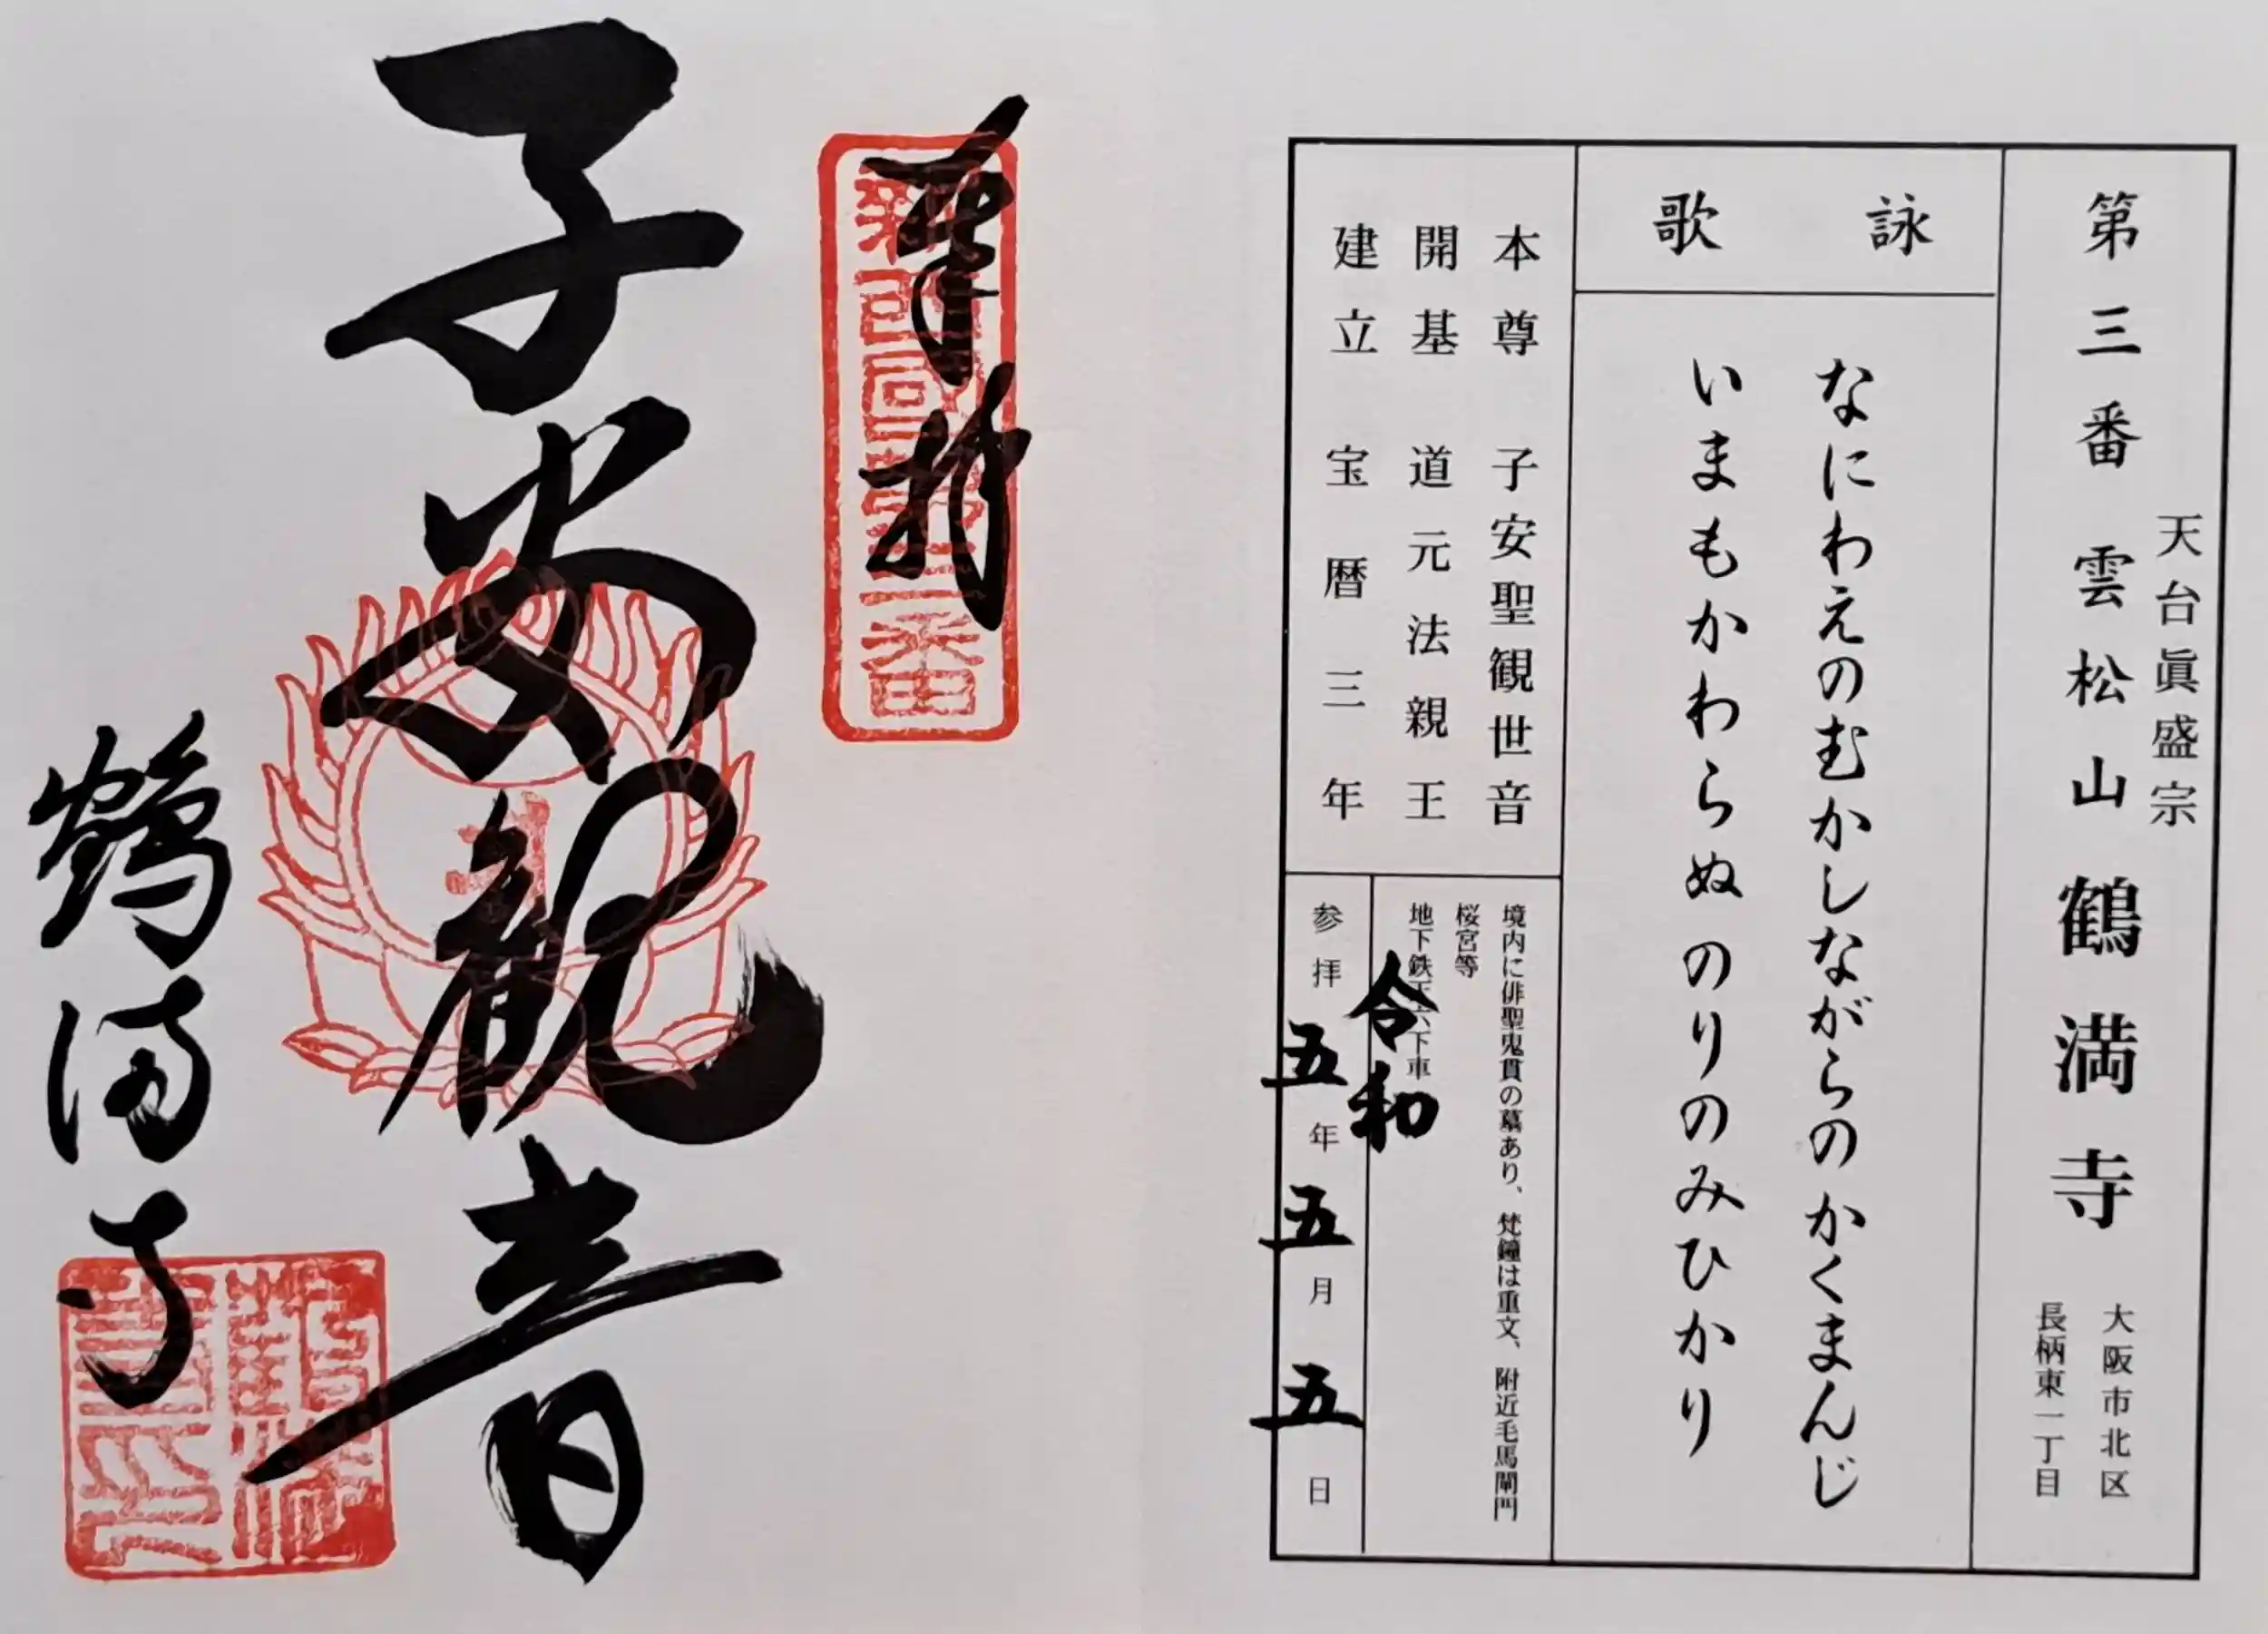 第三番 雲松山 鶴満寺
天台眞盛宗
大阪市北区
長柄東一丁目
詠歌
なにわえのむかしながらのかくまんじ
いまもかわらぬのりのみひかり
本尊 子安聖観世音
開基 道元法親王
建立 宝暦三年
境内に俳聖鬼貫の墓あり、梵鐘は重文、附近毛馬閘門
桜宮等
地下鉄天六下車
令和
参拝 五年 五月 五日
奉拝
新西国第三番
子安観音
鶴満寺